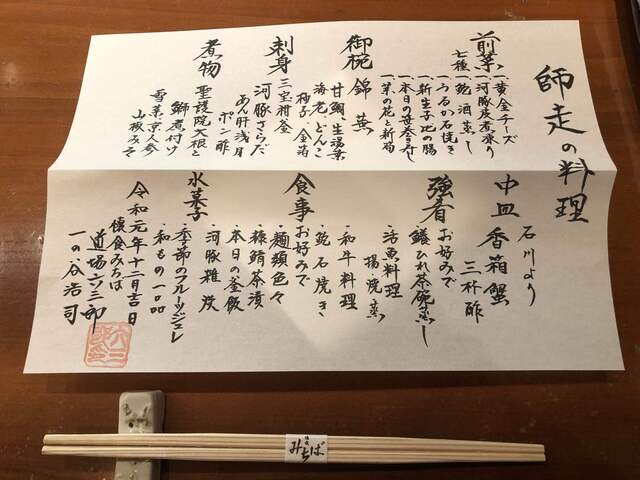 師走の料理
前菜
七種
一、黄金チーズ
一、河豚皮煮凍り
一、鮑酒蒸し
一、うるか石焼き
一、新生子地の腸
一、本日の笹巻寿し
一、菜の花と新筍
御椀 錦蕪
甘鯛、生湯葉
海老、どんこ
柚子、金箔
刺身 三宝柑釜
河豚さらだ
あん肝浅月
ポン酢
煮物 聖護院大根と
鰤煮付け
雪菜、京人参
山椒みそ
中皿 石川より
香箱蟹
三杯酢
強肴 お好みで
・鱶ひれ茶碗蒸し
・活魚料理
揚、焼、蒸
・和牛料理
・鮑石焼き
食事 お好みで
・麺類色々
・稼鯖茶漬
・本日の釜飯
・河豚雑炊
水菓子
・季節のフルーツジュレ
・和もの一品
令和元年十二月吉日
懐食みちば
道場六三郎
一の谷浩司
みちば